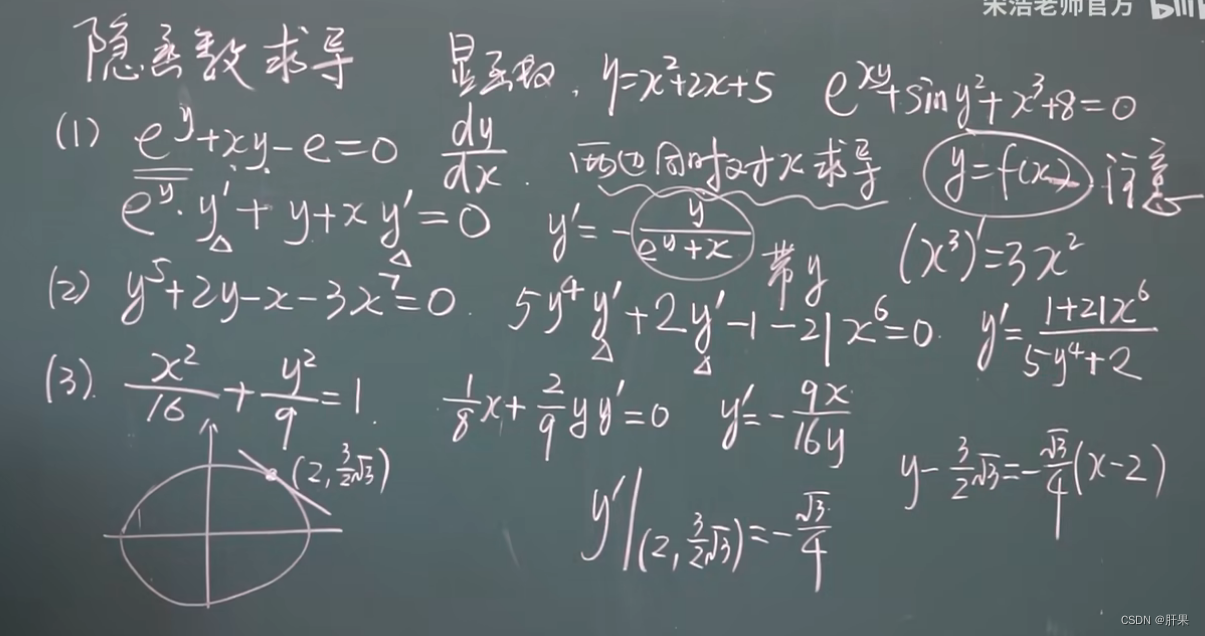 宋浩老师官方 bilibili
隐函数求导 显函数. y=x²+2x+5 e^{xy}+sin y²+x³+8=0
(1) e^y+xy-e=0 dy/dx. 两边同时对x求导 y=f(x) 注意
e^y·y'+y+xy'=0 y'=-y/(e^y+x) 带y (x³)'=3x²
(2) y⁵+2y-x-3x⁷=0. 5y⁴y'+2y'-1-21x⁶=0. y'=(1+21x⁶)/(5y⁴+2)
(3). x²/16+y²/9=1. 1/8x+2/9yy'=0 y'=-9x/16y
(2, 3/2√3) y-3/2√3=-√3/4(x-2)
y'|(2, 3/2√3)=-√3/4
CSDN @肝果